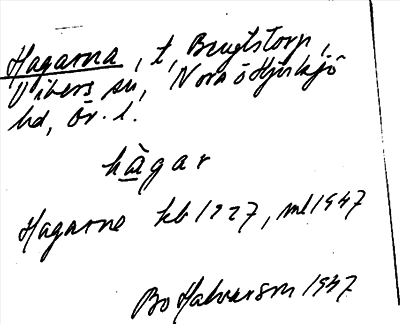 Hagarna, t, Brugtstorp,
Vikers sn, Nora o Hjulsjö
hd, Ör. l.
hàgar
Hagarne kb 1927, ml 1947
Bo Halvarson 1947